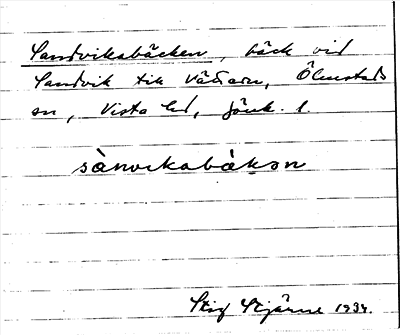 Sandviksbäcken, bäck vid
Sandvik till Vättern, Ölmstads
sn, Vista hd, Jönk. l.
sànvikabàkən
Stig Stjärne 1934.